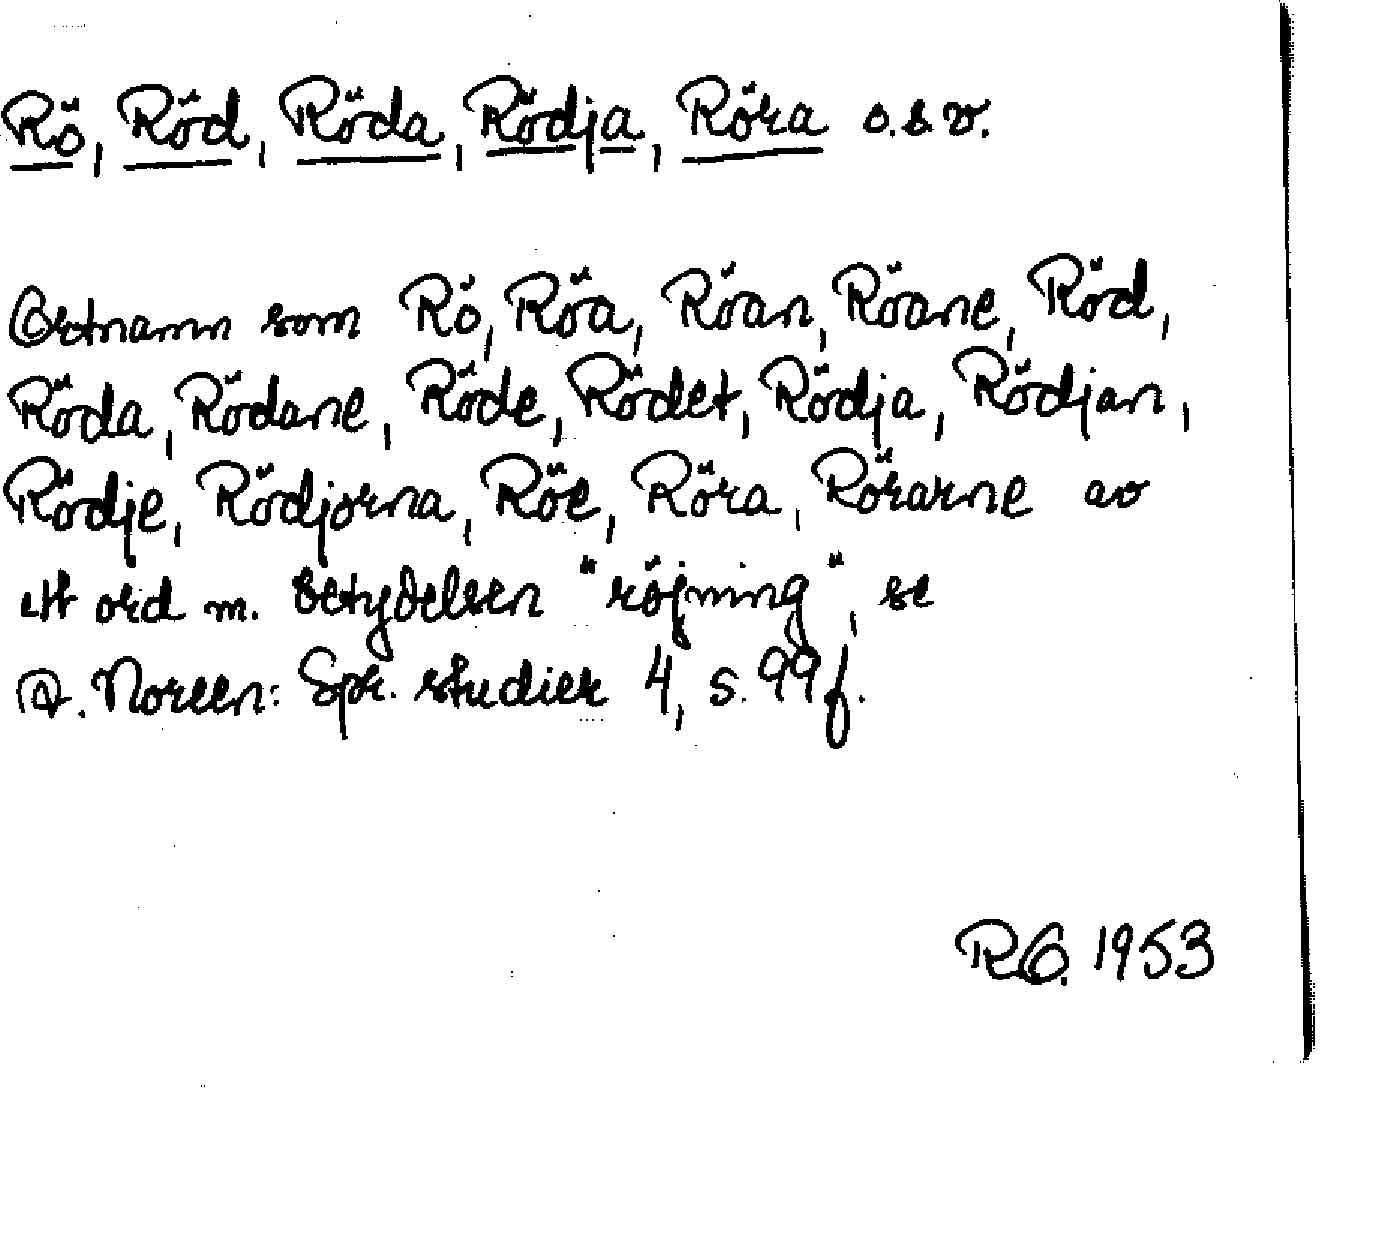 Rö, Röd, Röda, Rödja, Röra o.s.v.
Ortnamn som Rö, Röa, Röan, Röane, Röd,
Röda, Rödane, Röde, Rödet, Rödja, Rödjan,
Rödje, Rödjorna, Röe, Röra, Rörarne av
ett ord m. betydelsen "röjning", se
A. Noreen: Spr. studier 4, s. 99 f.
RG. 1953